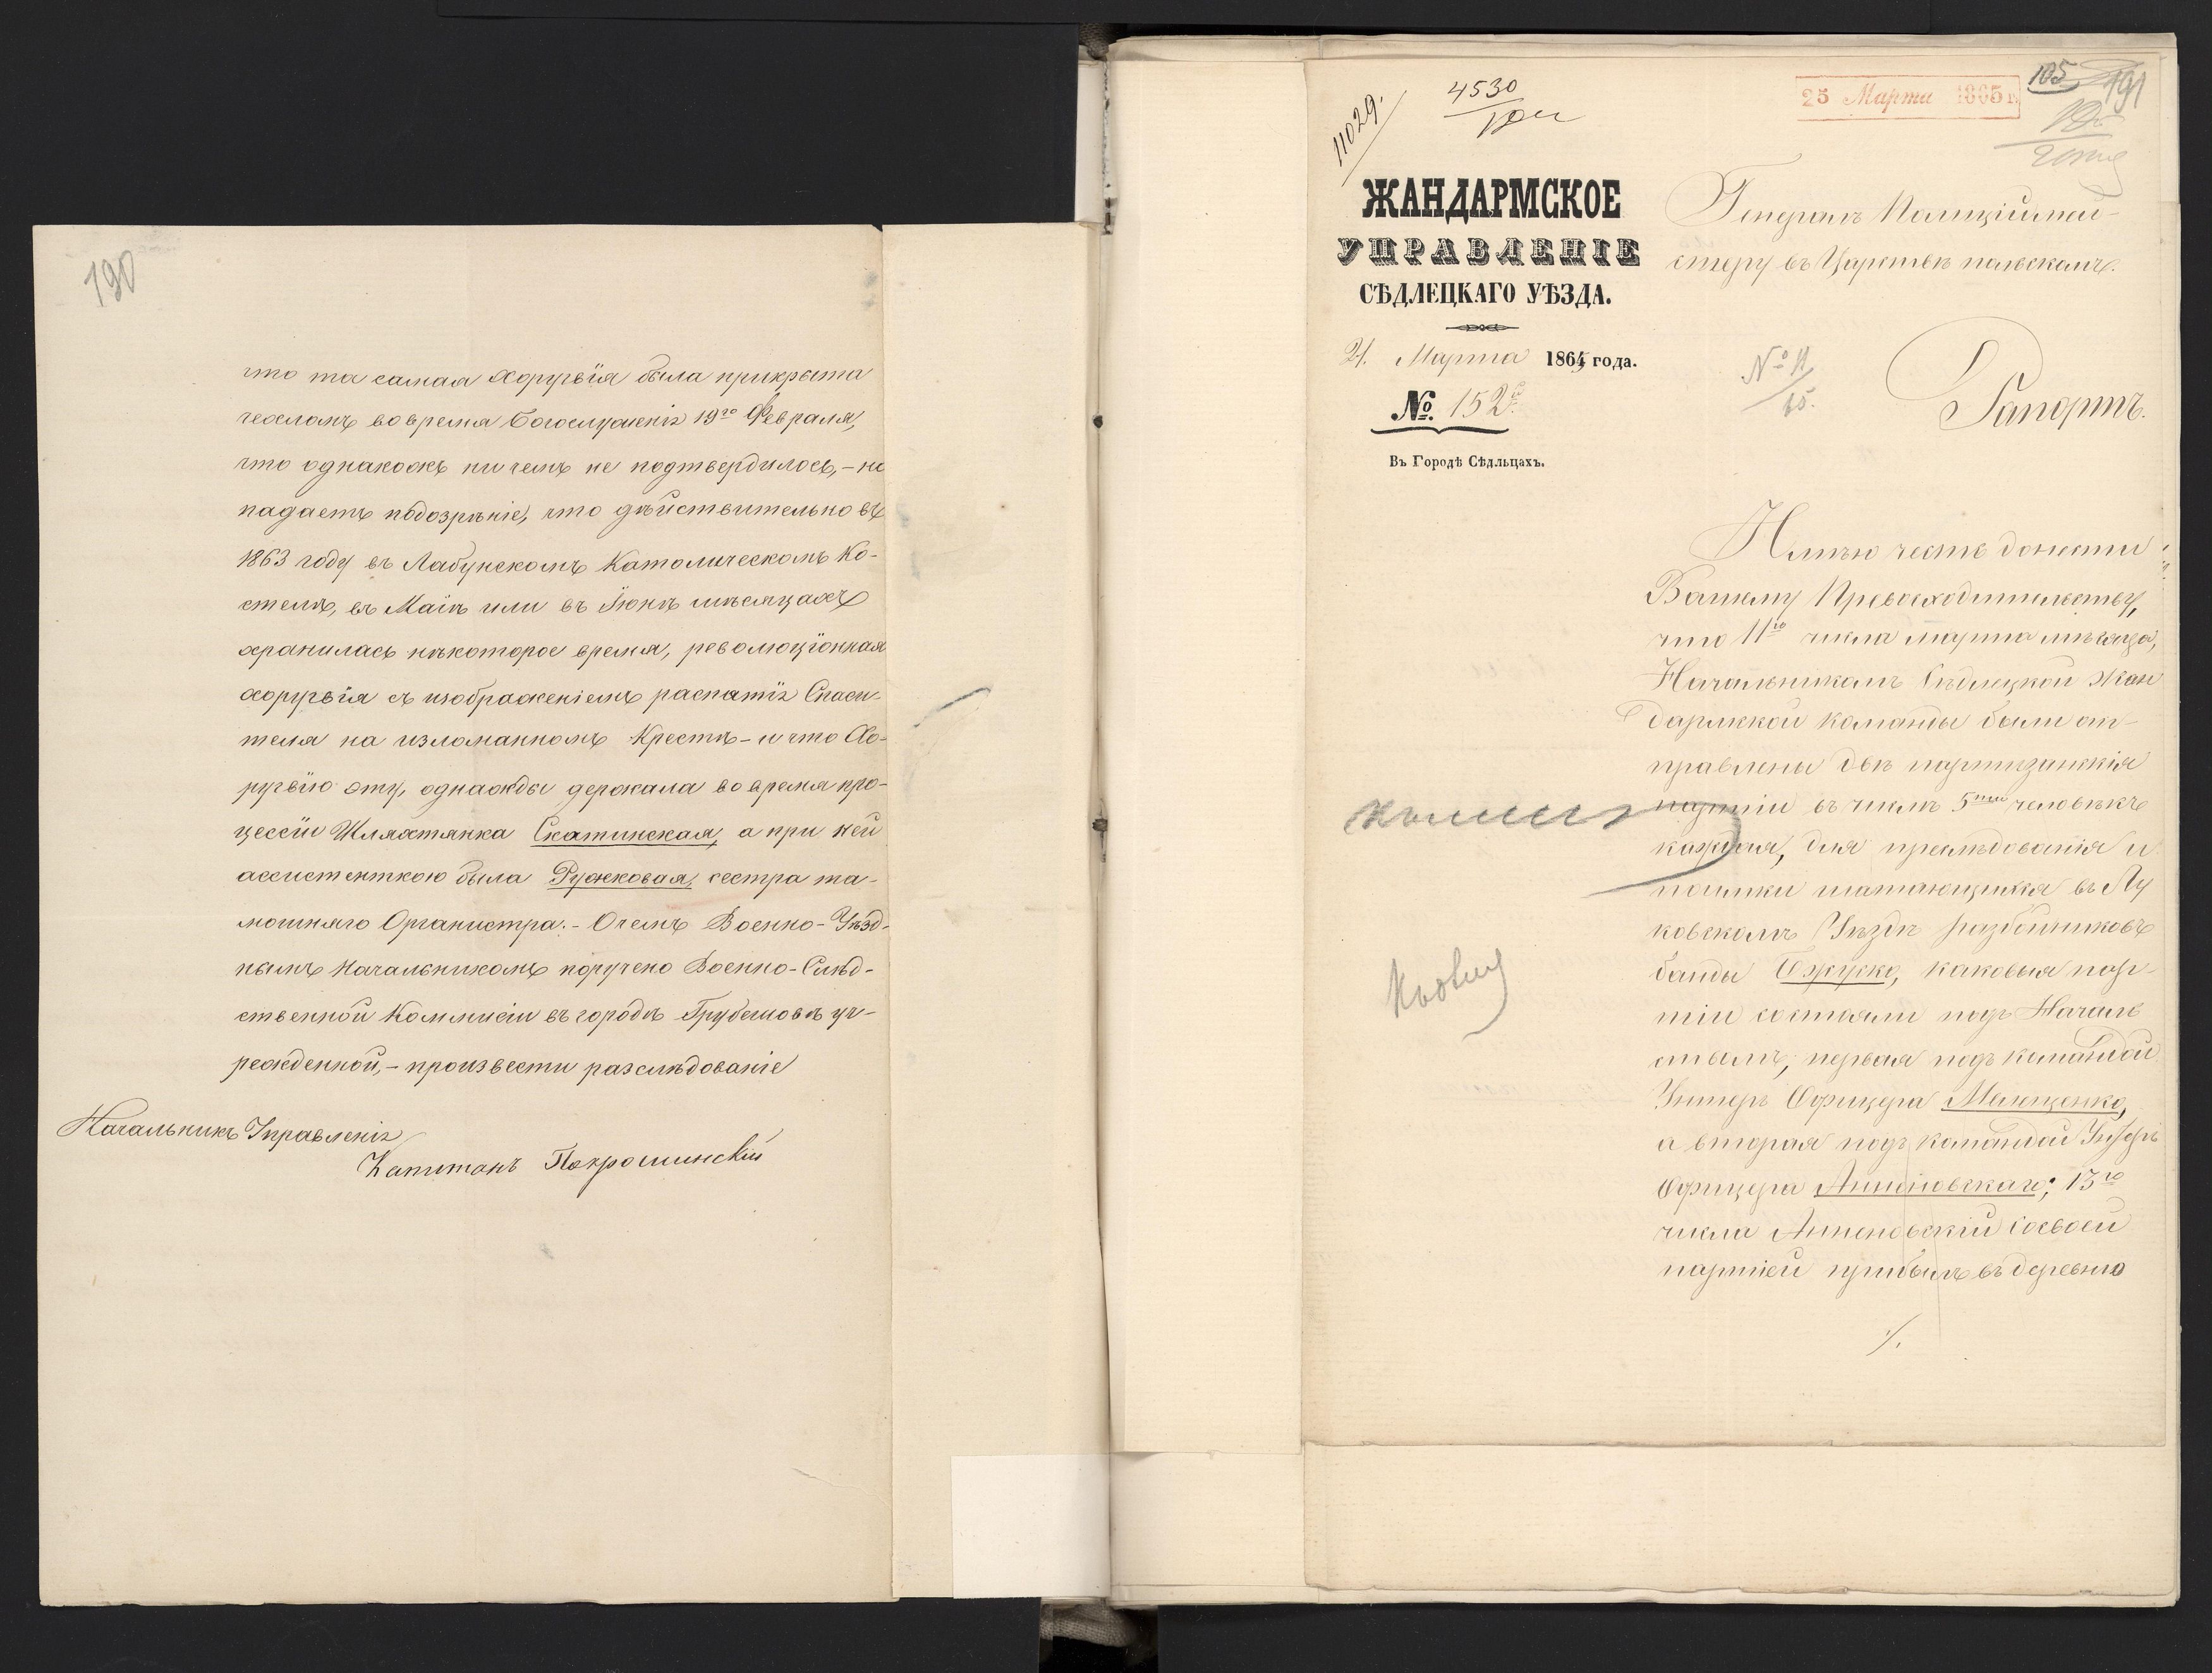 190
что та самая хоругвія была прикрыта
чехломъ во время Богослуженія 19го Февраля,
что однакожъ ни чемъ не подтвердилось, – но
падаетъ подозрѣніе, что дѣйствительно въ
1863 году въ Лабунскомъ Католическомъ Ко-
стелѣ, въ Маіѣ или въ Іюнѣ мѣсяцахъ
хранилась нѣкоторое время, революціонная
хоругвія съ изображеніемъ распятія Спаси-
теля на изломанномъ Крестѣ – и что Хо-
ругвію эту, однажды держала во время про-
цессіи Шляхтянка Скатинская, а при ней
ассистенткою была Ружковая, сестра та-
мошняго Органистра. – О чемъ Военно-Уѣзд-
нымъ Начальникомъ поручено Военно-Слѣд-
ственной Коммисіи въ городѣ Грубешовѣ уч-
режденной, – произвести разслѣдованіе
Начальникъ Управленія
Капитанъ Покрошинскій
11029.
4530
25 Марта 1865 г.
105
191
ЖАНДАРМСКОЕ
УПРАВЛЕНІЕ
СѢДЛЕЦКАГО УѢЗДА.
21. Марта 1865 года.
№ 152
Въ Городѣ Сѣдльцахъ.
Генералъ Полиціймей-
стеру въ Царствѣ польскомъ.
№ 11
65.
Рапортъ.
Имѣю честь донести
Вашему Превосходительству,
что 11го числа марта мѣсяца,
Начальникомъ Сѣдлецкой Жан
дармской команды были от-
правлены двѣ партизанскія
партіи въ числѣ 5ти человѣкъ
каждая, для преслѣдованія и
поимки шатающихся въ Лу
ковскомъ Уѣздѣ разбойниковъ
банды, каковыя пар-
тіи состояли подъ Началь
ствомъ, первая подъ командой
Унтеръ Офицера Мелященко,
а вторая подъ командой Унтеръ
Офицера Антоновскаго; 13го
числа Антоновскій сосвоей
партіей прибылъ въ деревню
./.